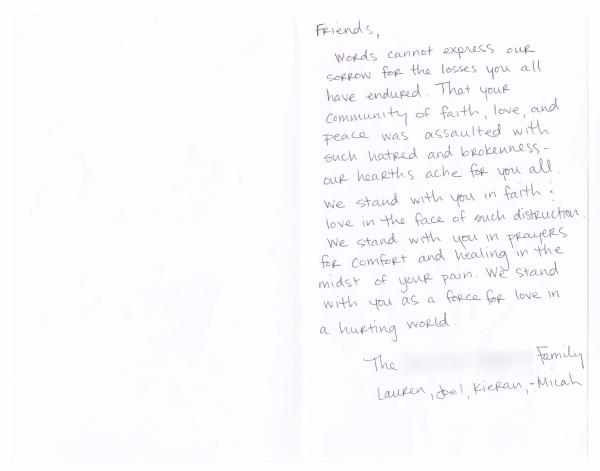 Friends,
Words cannot express our
sorrow for the losses you all
have endured. That your
community of faith, love, and
peace was assaulted with
such hatred and brokenness -
our hearths ache for you all.
We stand with you in faith &
love in the face of such distruction.
We stand with you in prayers
for comfort and healing in the
midst of your pain. We stand
with you as a force for love in
a hurting world.
The Family
Lauren, Joel, Kieran, & Micah